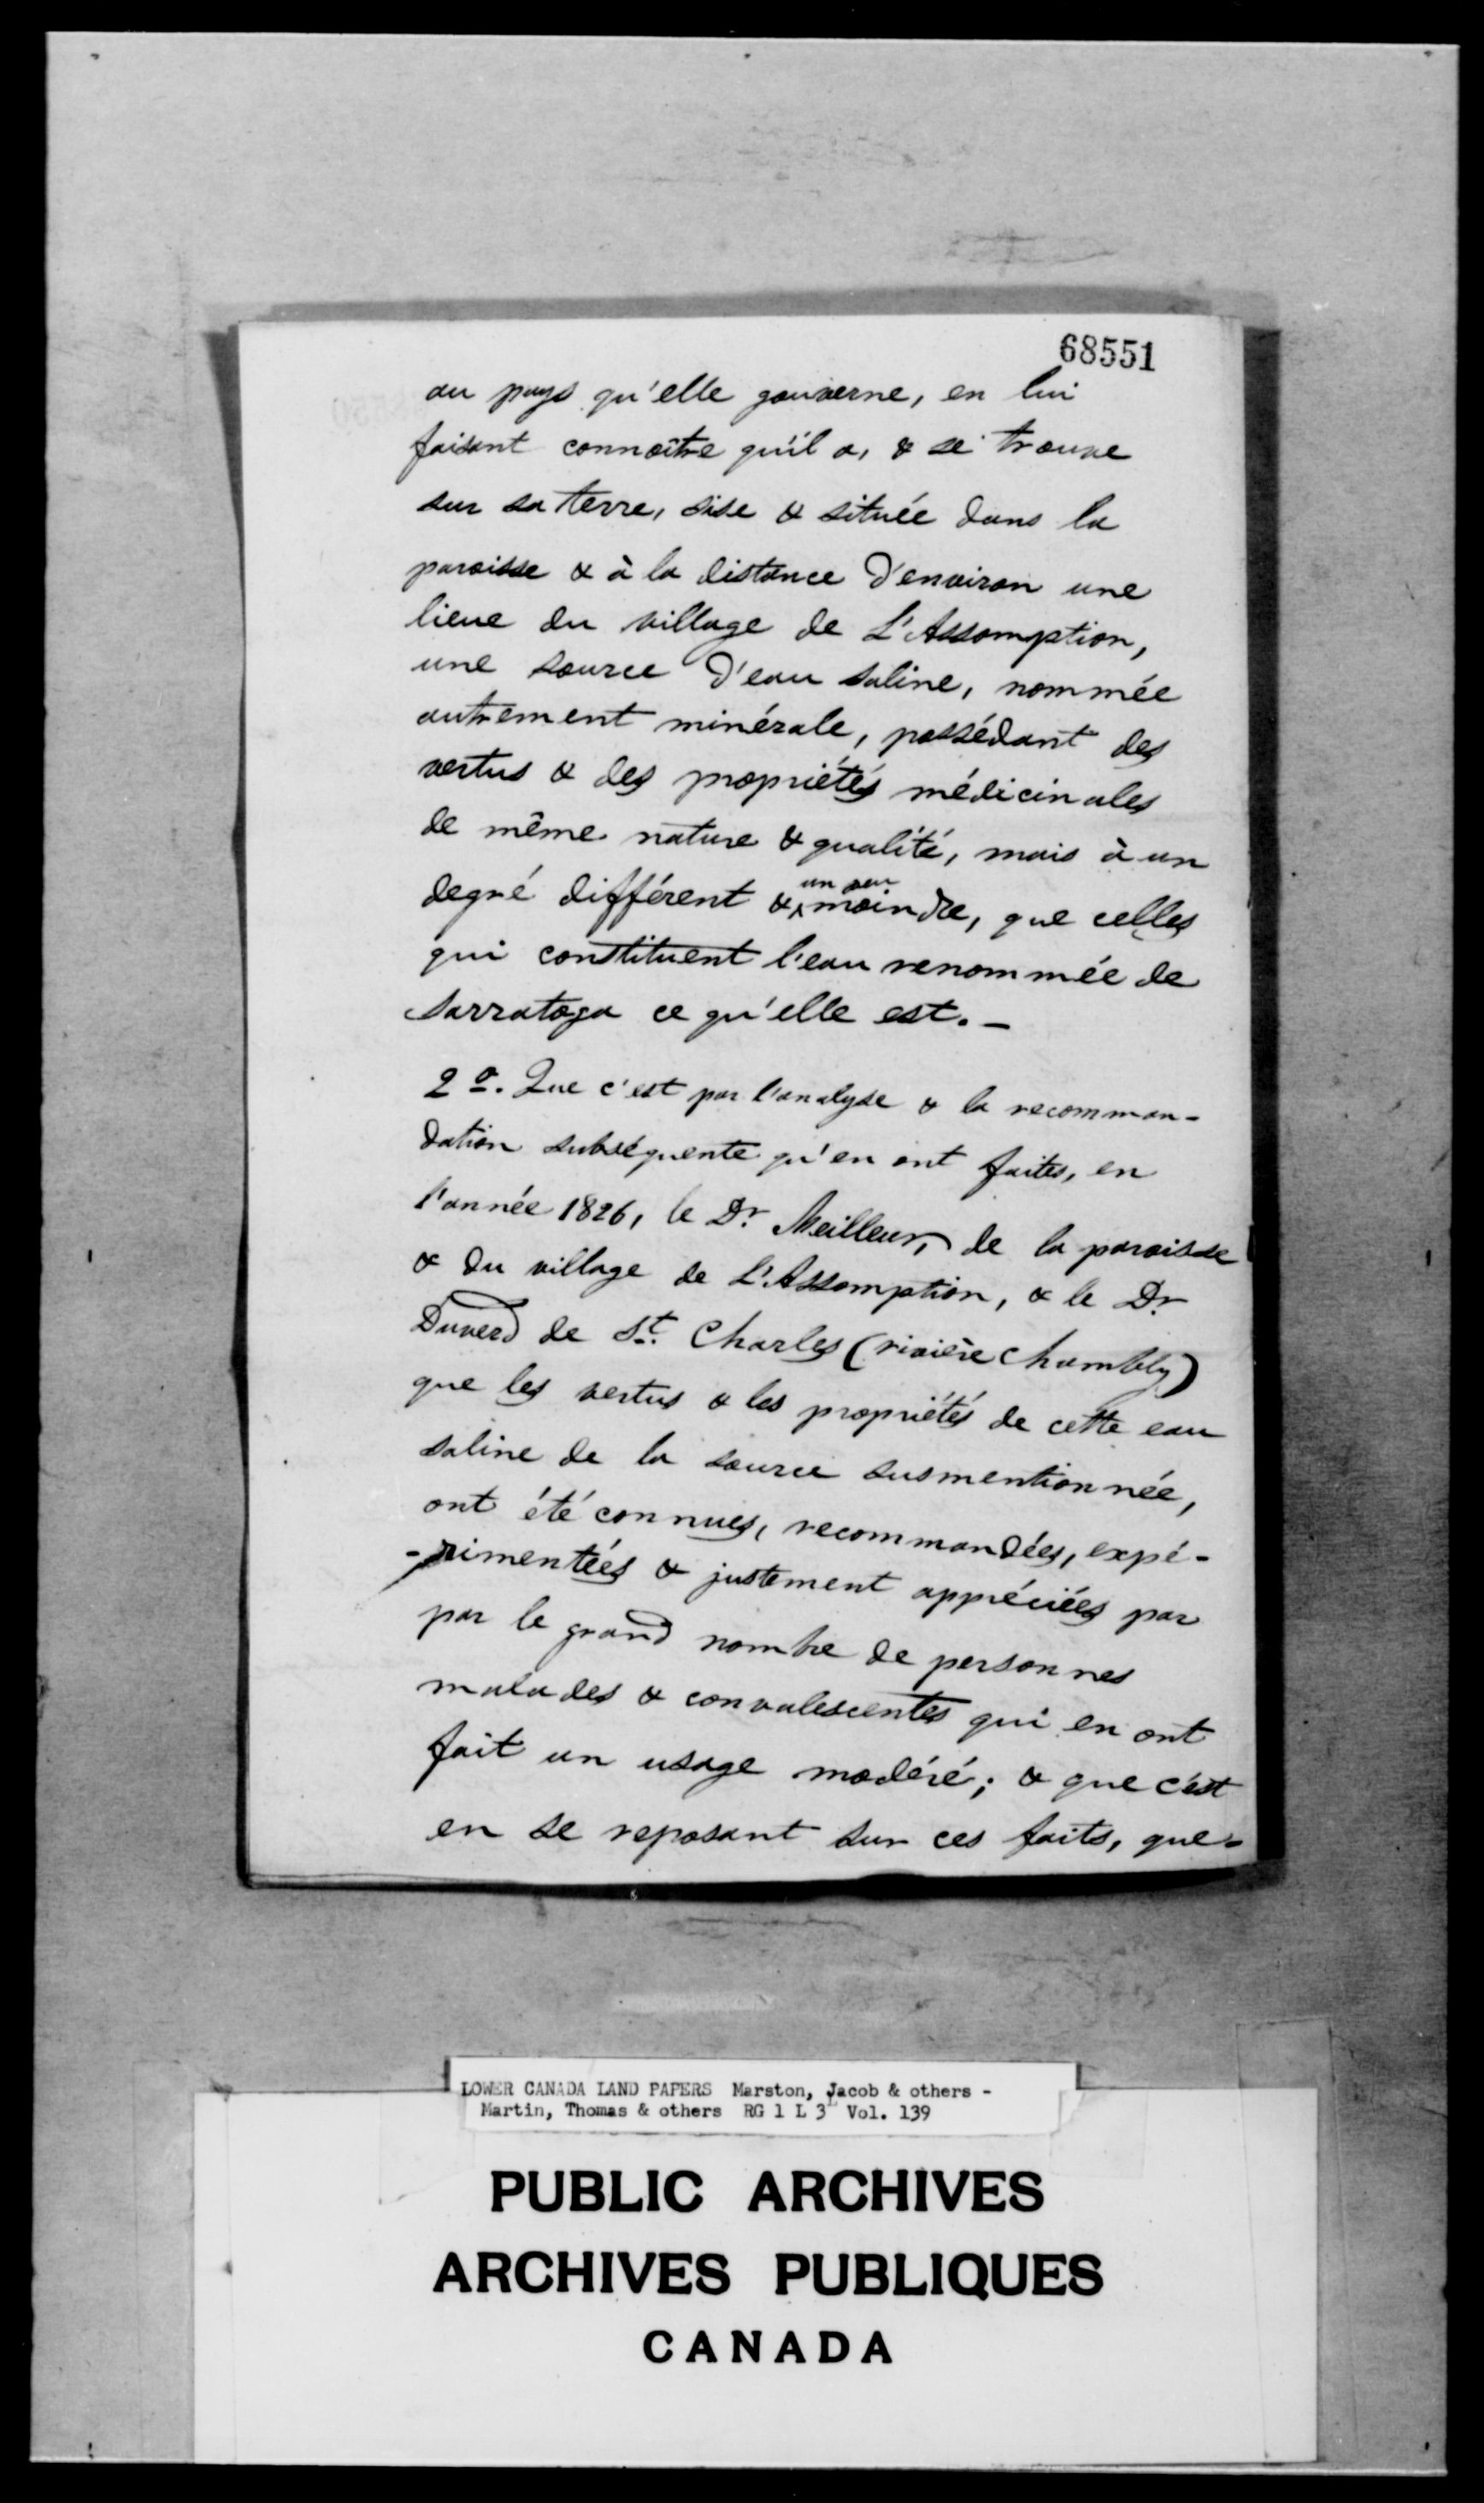 68551
au pays qu'elle gouverne, en lui
faisant connoître qu'il a, & se trouve
sur sa terre, sise & située dans la
paroisse & à la distance d'environ une
lieue du village de L'Assomption,
une source d'eau saline, nommée
autrement minérale, possédant des
vertus & des propriétés médicinales
de même nature & qualité, mais à un
un peu
degré différent & moindre, que celles
qui constituent l'eau renommée de
Sarratoga ce qu'elle est. -
2º. Que c'est par l'analyse & la recomman-
dation subséquente qu'en ont faites, en
l'année 1826, le Dr. Meilleur, de la paroisse
& du village de L'Assomption, & le Dr.
Duverd de St. Charles (rivière Chambly)
que les vertus & les propriétés de cette eau
saline de la source susmentionnée,
ont été connues, recommandées, expé-
-rimentées & justement appréciées par
par le grand nombre de personnes
malades & convalescentes qui en ont
fait un usage modéré; & que c'est
en se reposant sur ces faits, que-
LOWER CANADA LAND PAPERS Marston, Jacob & others -
Martin, Thomas & others RG 1 L 3L Vol. 139
PUBLIC ARCHIVES
ARCHIVES PUBLIQUES
CANADA